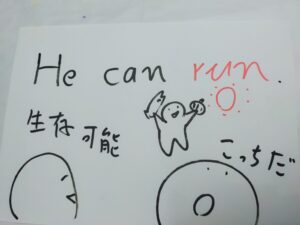 He can run.
生存可能
こっちだ